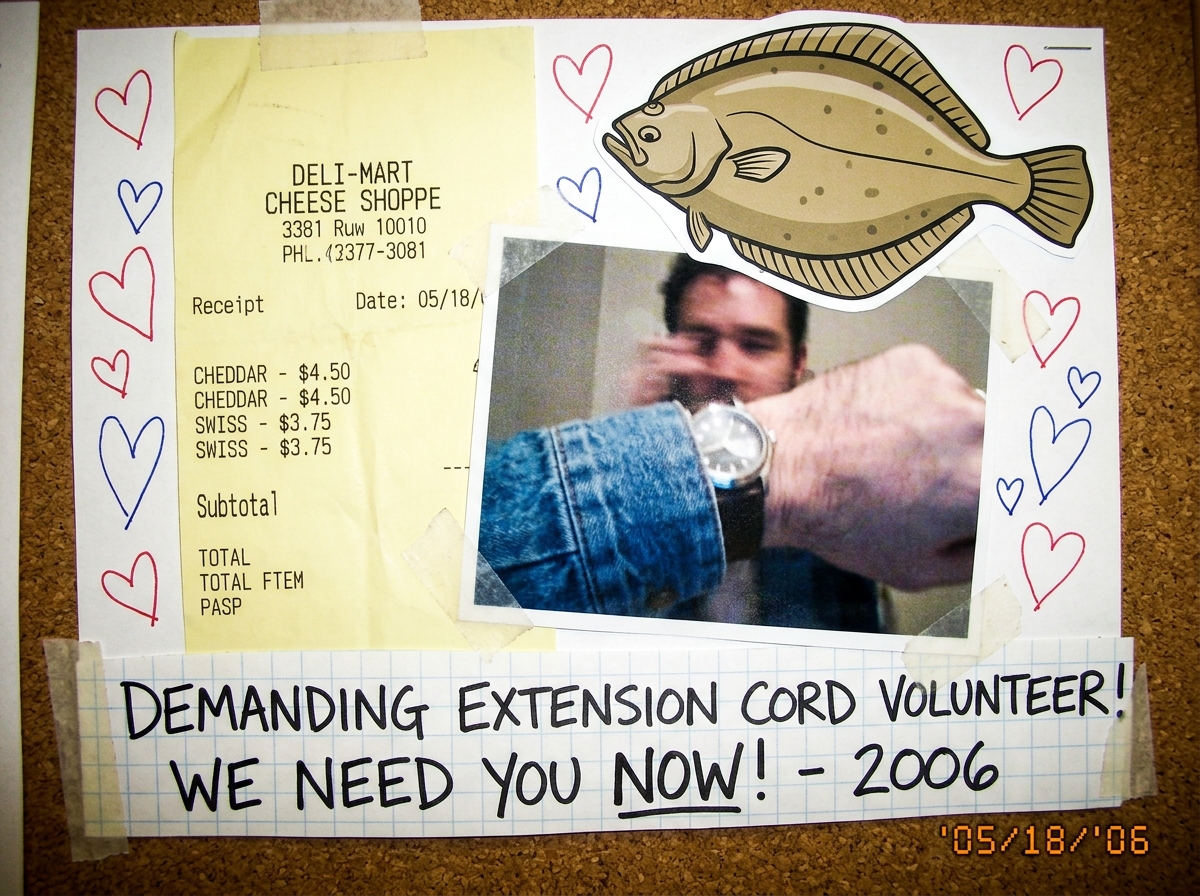 DELI-MART
CHEESE SHOPPE
3381 Ruw 10010
PHL.(3377-3081
Receipt Date: 05/18/
CHEDDAR - $4.50
CHEDDAR - $4.50
SWISS - $3.75
SWISS - $3.75
Subtotal
TOTAL
TOTAL FTEM
PASP
DEMANDING EXTENSION CORD VOLUNTEER!
WE NEED YOU NOW! - 2006
'05/18/'06